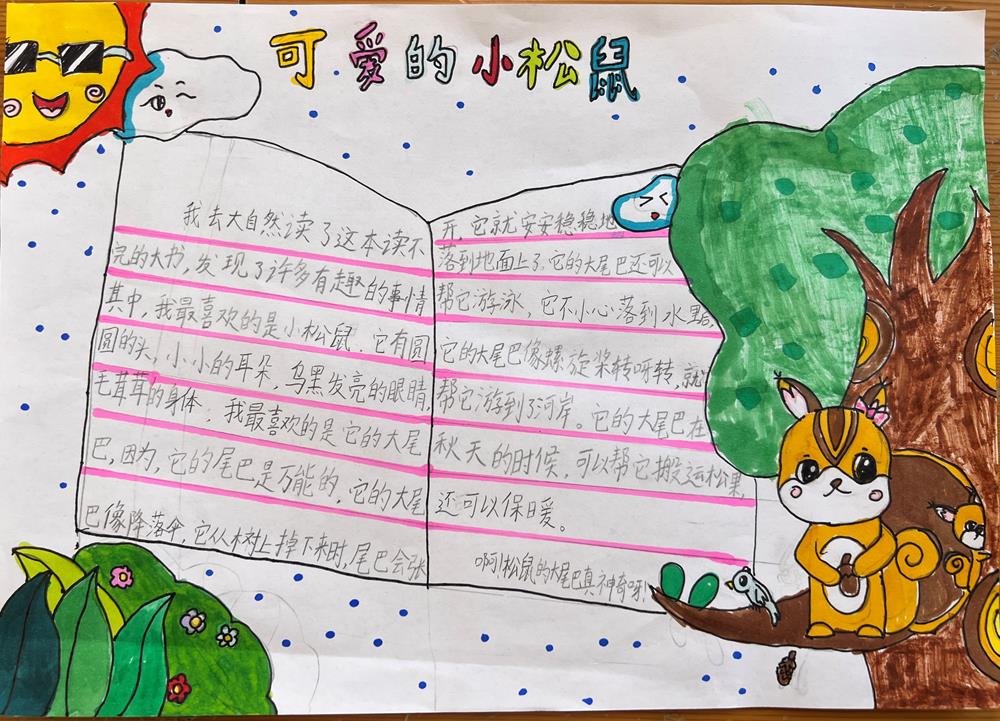 可爱的小松鼠
我去大自然读了这本读不
完的大书，发现了许多有趣的事情
其中，我最喜欢的是小松鼠．它有圆
圆的头，小小的耳朵，乌黑发亮的眼睛，
毛茸茸的身体．我最喜欢的是它的大尾
巴，因为，它的尾巴是万能的．它的大尾
巴像降落伞，它从树上掉下来时，尾巴会张
开，它就安安稳稳地
落到地面上了．它的大尾巴还可以
帮它游泳，它不小心落到水里，
它的大尾巴像螺旋桨转呀转，就
帮它游到了河岸。它的大尾巴在
秋天的时候，可以帮它搬运松果，
还可以保暖。
啊！松鼠的大尾巴真神奇呀！